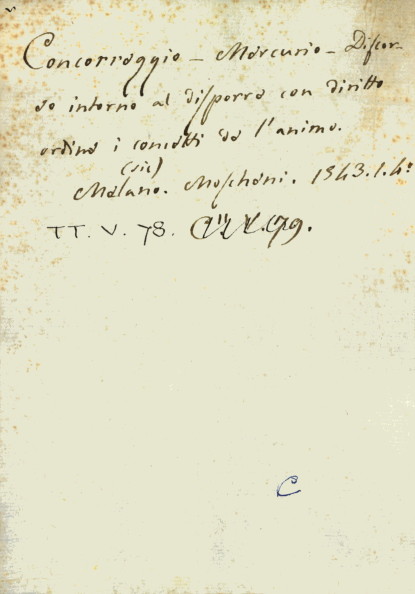 Concorreggio - Mercurio - Discor-
so intorno al disporre con diritto
ordine i concetti de l'animo.
(sic)
Melano. Moscheni. 1543. 1. 4°
TT. V. 78.
C